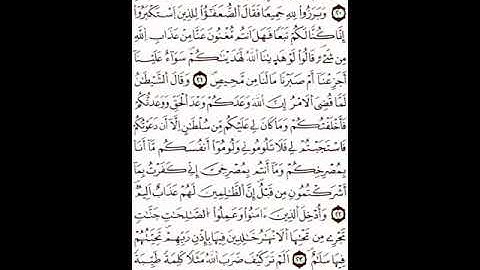 ٢٠ وَبَرَزُوا۟ لِلَّهِ جَمِيعًا فَقَالَ ٱلضُّعَفَٰٓؤُا۟ لِلَّذِينَ ٱسْتَكْبَرُوٓا۟
إِنَّا كُنَّا لَكُمْ تَبَعًا فَهَلْ أَنتُم مُّغْنُونَ عَنَّا مِنْ عَذَابِ ٱللَّهِ
مِن شَىْءٍ قَالُوا۟ لَوْ هَدَىٰنَا ٱللَّهُ لَهَدَيْنَٰكُمْ سَوَآءٌ عَلَيْنَآ
أَجَزِعْنَآ أَمْ صَبَرْنَا مَا لَنَا مِن مَّحِيصٍ ٢١ وَقَالَ ٱلشَّيْطَٰنُ
لَمَّا قُضِىَ ٱلْأَمْرُ إِنَّ ٱللَّهَ وَعَدَكُمْ وَعْدَ ٱلْحَقِّ وَوَعَدتُّكُمْ
فَأَخْلَفْتُكُمْ وَمَا كَانَ لِىَ عَلَيْكُم مِّن سُلْطَٰنٍ إِلَّآ أَن دَعَوْتُكُمْ
فَٱسْتَجَبْتُمْ لِى فَلَا تَلُومُونِى وَلُومُوٓا۟ أَنفُسَكُم مَّآ أَنَا۠
بِمُصْرِخِكُمْ وَمَآ أَنتُم بِمُصْرِخِىَّ إِنِّى كَفَرْتُ بِمَآ
أَشْرَكْتُمُونِ مِن قَبْلُ إِنَّ ٱلظَّٰلِمِينَ لَهُمْ عَذَابٌ أَلِيمٌ
٢٢ وَأُدْخِلَ ٱلَّذِينَ ءَامَنُوا۟ وَعَمِلُوا۟ ٱلصَّٰلِحَٰتِ جَنَّٰتٍ
تَجْرِى مِن تَحْتِهَا ٱلْأَنْهَٰرُ خَٰلِدِينَ فِيهَا بِإِذْنِ رَبِّهِمْ تَحِيَّتُهُمْ
فِيهَا سَلَٰمٌ ٢٣ أَلَمْ تَرَ كَيْفَ ضَرَبَ ٱللَّهُ مَثَلًا كَلِمَةً طَيِّبَةً